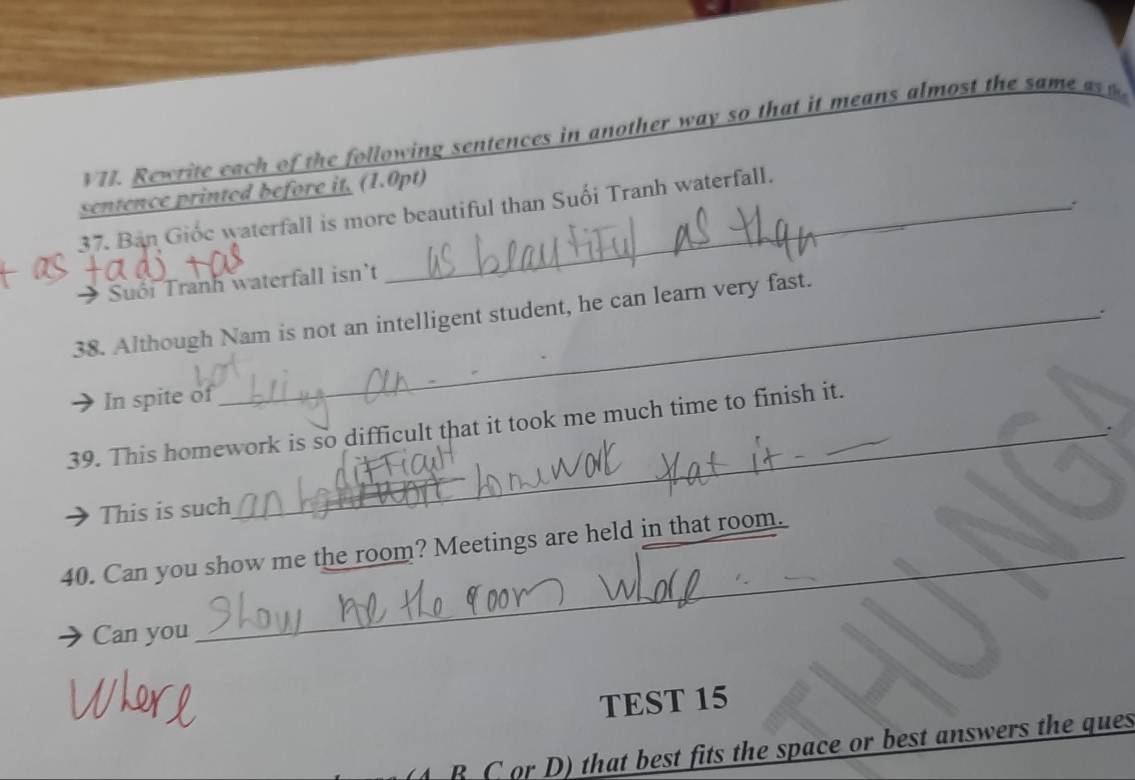 VII. Rewrite each of the following sentences in another way so that it means almost the same as the
sentence printed before it. (1.0pt)
37. Bản Giốc waterfall is more beautiful than Suối Tranh waterfall.
+ as +adj +as
→ Suối Tranh waterfall isn't as beautiful as than
38. Although Nam is not an intelligent student, he can learn very fast.
not
→ In spite of being an
39. This homework is so difficult that it took me much time to finish it.
difficult
→ This is such an homework that it
40. Can you show me the room? Meetings are held in that room.
→ Can you show me the room where
Where
TEST 15
B, C or D) that best fits the space or best answers the ques
THU NGA